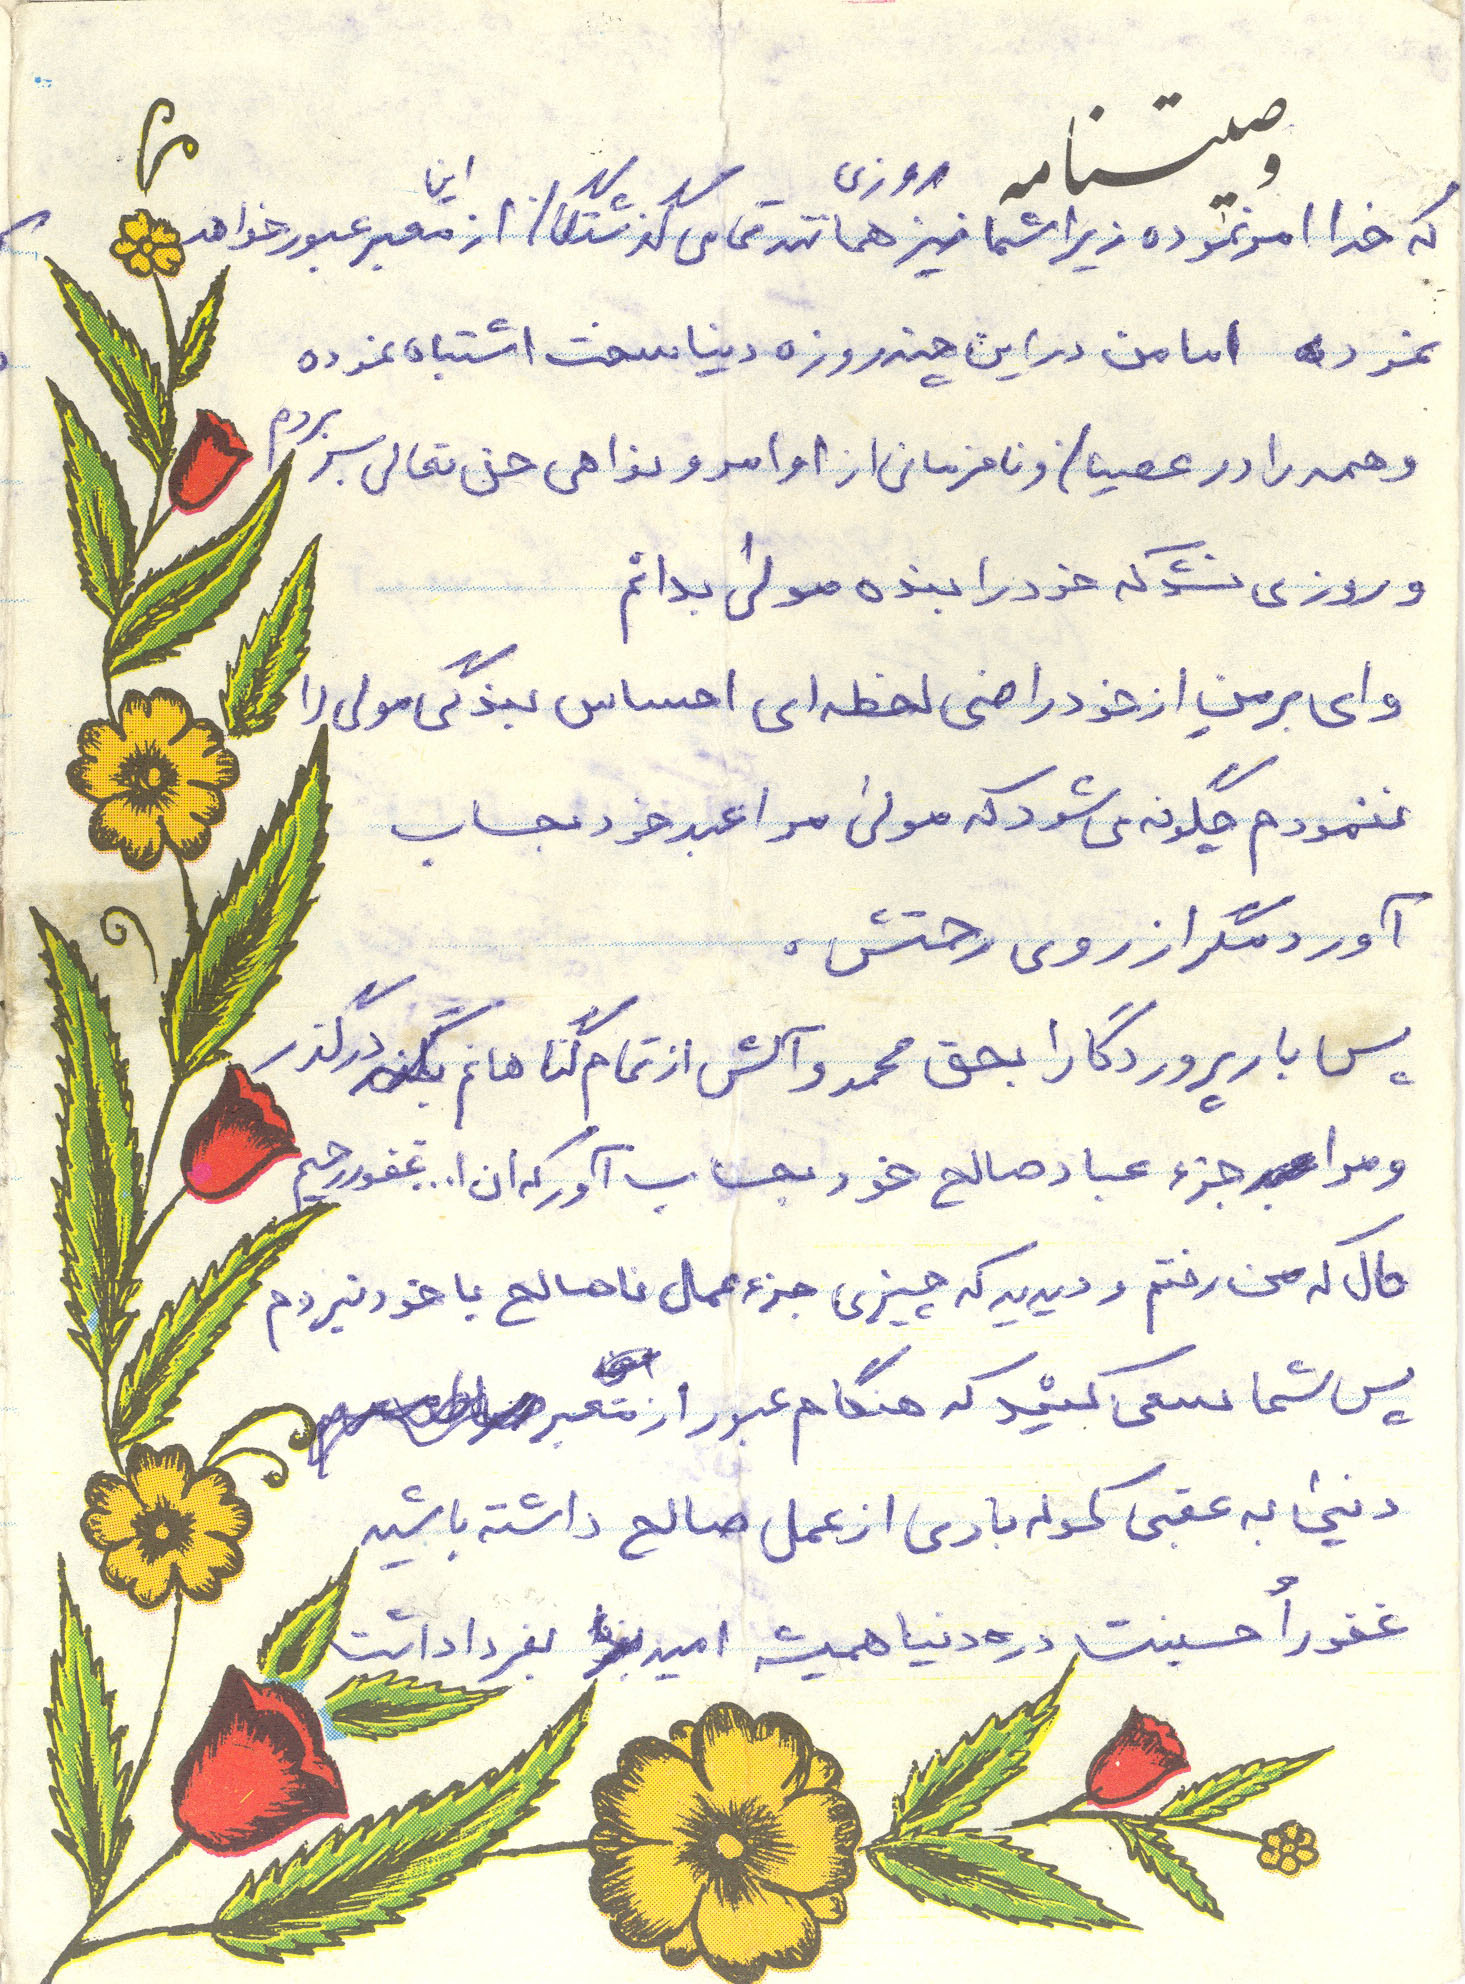 وصیتنامه
که خدا امر نموده زیرا شما نیز همانند تمامی گذشتگان روزی از این معبر عبور خواهید
نمود اما من در این چند روزه دنیا سخت اشتباه نموده
و همه را در عصیان و نافرمانی از اوامر و نواهی حق تعالی بسر بردم
و روزی نشد که خود را بنده مولی بدانم
وای بر من از خود راضی لحظه ای احساس بندگی مولی را
ننمودم چگونه می شود که مولی مرا عبد خود بحساب
آورد مگر از روی رحمتش .
پس بار پروردگارا بحق محمد و آلش از تمام گناهانم درگذر
و مرا جزء عباد صالح خود بحساب آور که ان ا... غفور رحیم
حال که من رفتم و دیدید که چیزی جزء عمل ناصالح با خود نبردم
پس شما سعی کنید که هنگام عبور از معبر
دنیا به عقبی کوله باری از عمل صالح داشته باشید
در دنیا همیشه امید بفردا داشت